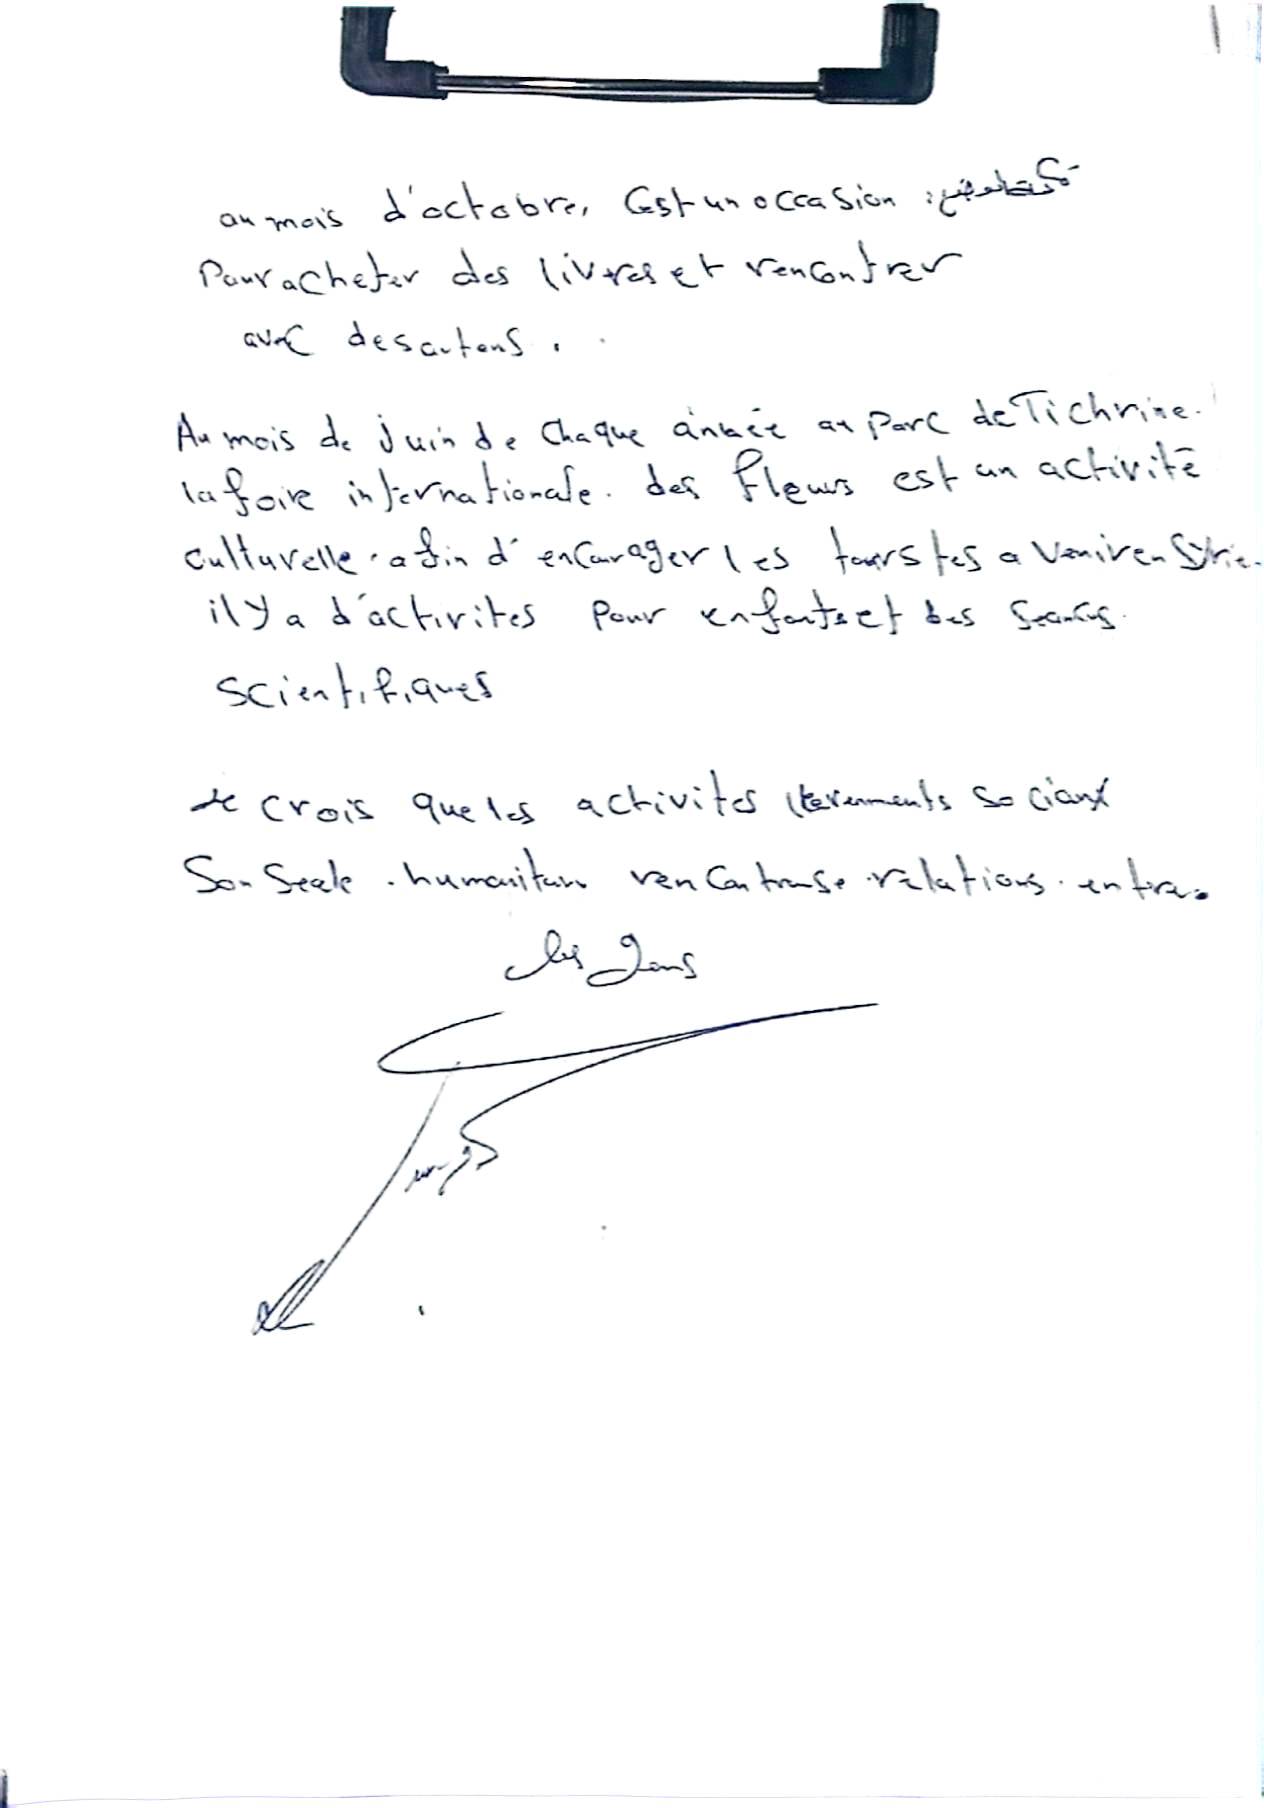 au mois d'octobre, C'est un occasion
Pour acheter des livres et rencontrer
avec des auteurs.
Au mois de juin de chaque année au Parc de Tichrine.
la foire internationale. des fleurs est un activité
culturelle. afin d'encourager les touristes a venir en Syrie.
il y a d'activites pour enfants et des seances.
scientifiques
Je crois que les activites evenments sociaux
humanitaire relations. entre.
les gens